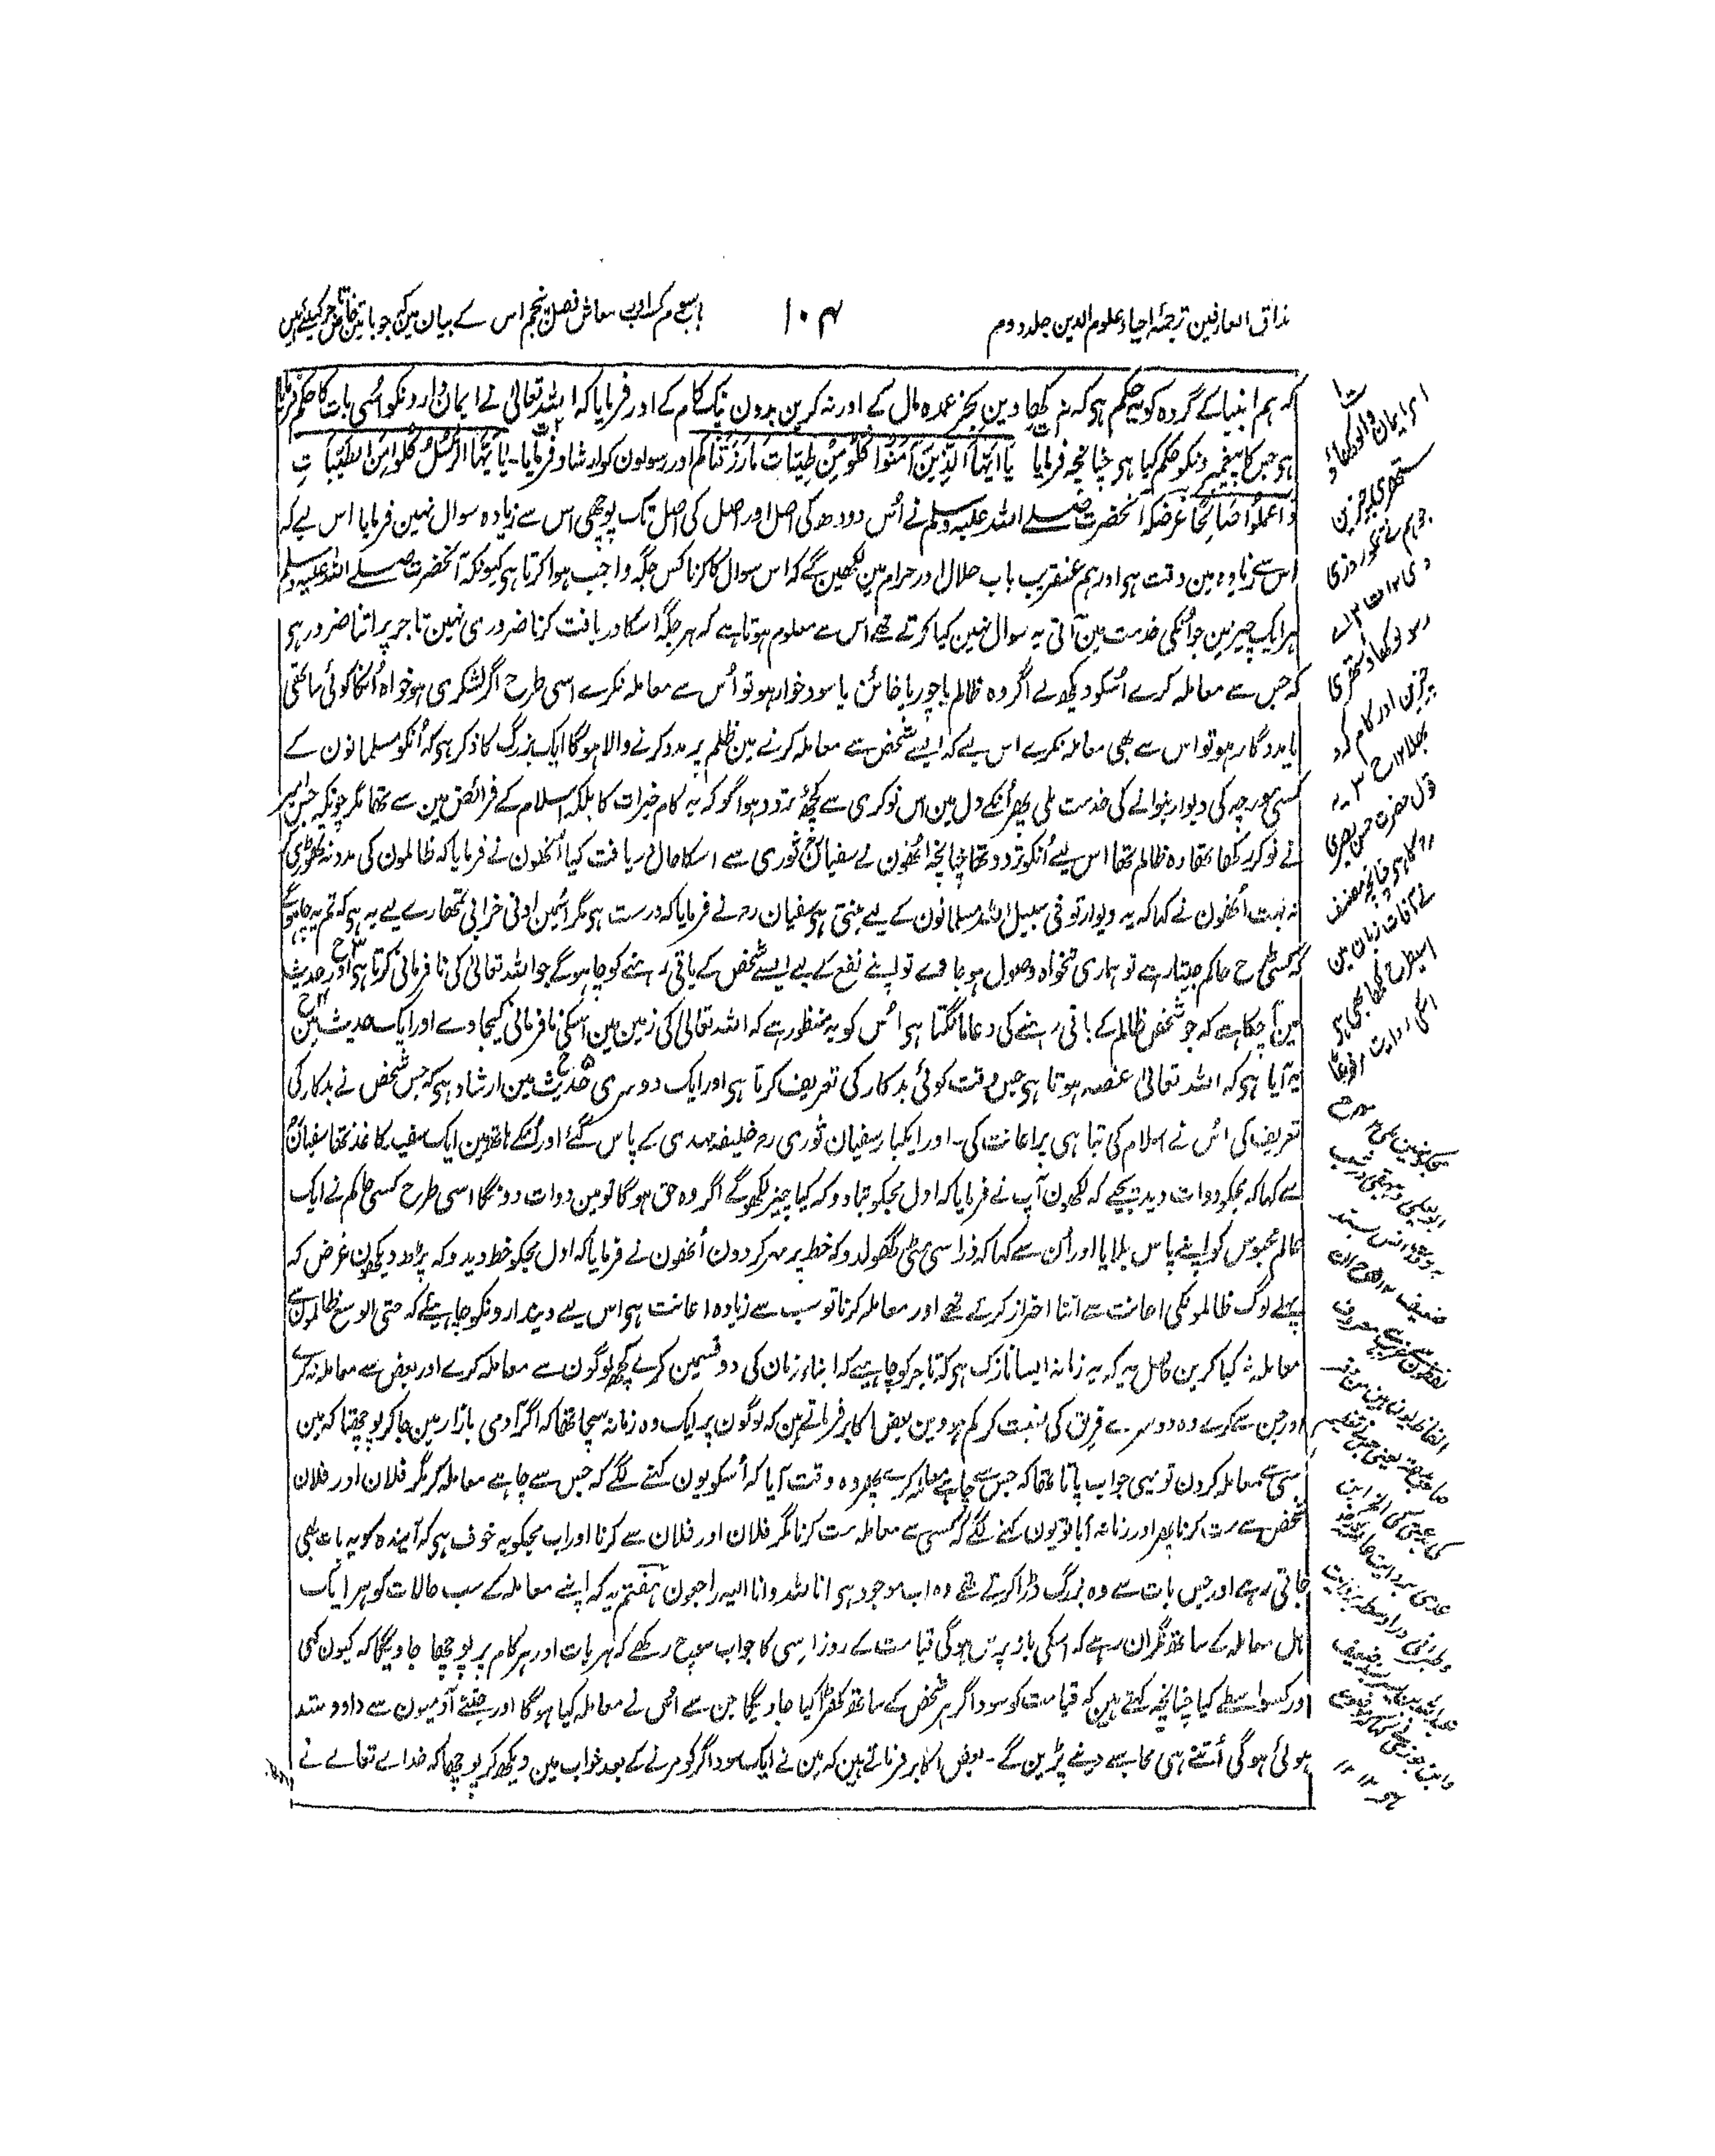 مذاق العارفین ترجمۂ احیاء علوم الدین جلد دوم
۱۰۴
باب سوم کسب و معاش فصل پنجم اس کے بیان مین کہ جو باتین خاص تاجر کیلئے ہین
کہ ہم انبیا کے گروہ کو یہ حکم ہی کہ نہ کھاوین بجز عمدہ مال کے اور نہ کرین بدون نیک کام کے اور فرمایا کہ اللہ تعالیٰ نے ایماندارونکو اُسی بات کا حکم فرمایا
ہی جس کا پیغمبرونکو حکم کیا ہی چنانچہ فرمایا یَا اَیُّہَا الَّذِیْنَ آمَنُوْا کُلُوْا مِنْ طَیِّبَاتِ مَا رَزَقْنَاکُمْ اور رسولون کو ارشاد فرمایا۔ یَا اَیُّہَا الرُّسُلُ کُلُوْا مِنَ الطَّیِّبَاتِ
وَاعْمَلُوْا صَالِحًا غرضکہ آنحضرت صلے اللہ علیہ وسلم نے اُس دودھ کی اصل اور اصل کی اصل تک پوچھی اس سے زیادہ سوال نہین فرمایا اس لیے کہ
اس سے زیادہ مین دقت ہی اور ہم عنقریب باب حلال اور حرام مین لکھین گے کہ اس سوال کا کرنا کس جگہ واجب ہوا کرتا ہی کیونکہ آنحضرت صلے اللہ علیہ وسلم
ہر ایک چیز مین جو اُنکی خدمت مین آتی یہ سوال نہین کیا کرتے تھے اس سے معلوم ہوتا ہے کہ ہر جگہ اسکا دریافت کرنا ضروری نہین تاجر پر اتنا ضرور ہی
کہ جس سے معاملہ کرے اُسکو دیکھ لے اگر وہ ظالم یا چور یا خائن یا سود خوار ہو تو اُس سے معاملہ نکرے اسی طرح اگر لشکری ہو خواہ اُنکا کوئی ساتھی
یا مددگار ہو تو اس سے بھی معاملہ نکرے اس لیے کہ ایسے شخص سے معاملہ کرنے مین ظلم پر مدد کرنے والا ہوگا ایک بزرگ کا ذکر ہی کہ اُنکو مسلمانون کے
کسی مورچہ کی دیوار بنوانے کی خدمت ملی پھر اُنکے دل مین اس نوکری سے کچھ تردد ہوا گو کہ یہ کام خیرات کا بلکہ اسلام کے فرائض مین سے تھا مگر چونکہ جس امیر
نے نوکر رکھا تھا وہ ظالم تھا اس لیے اُنکو تردد تھا چنانچہ اُنھون نے سفیان ثوری سے اسکا حال دریافت کیا اُنھون نے فرمایا کہ ظالمون کی مدد نہ تھوڑی کر
نہ بہت اُنھون نے کہا کہ یہ دیوار تو فی سبیل اللہ مسلمانون کے لیے بنتی ہی سفیان رح نے فرمایا کہ درست ہی مگر اسمین ادنی خرابی تمھارے لیے یہ ہی کہ تم یہ چاہوگے
کہ کسی طرح حاکم جیتا رہے تو ہماری تنخواہ وصول ہو جاوے تو اپنے نفع کے لیے ایسے شخص کے باقی رہنے کو چاہوگے جو اللہ تعالیٰ کی نافرمانی کرتا ہی اور حدیث
مین آچکا ہے کہ جو شخص ظالم کے باقی رہنے کی دعا مانگتا ہی اُس کو یہ منظور ہے کہ اللہ تعالیٰ کی زمین مین اُسکی نافرمانی کیجاوے اور ایک حدیث مین
یہ آیا ہی کہ اللہ تعالیٰ غصہ ہوتا ہی جس وقت کوئی بدکار کی تعریف کرتا ہی اور ایک دوسری حدیث مین ارشاد ہی کہ جس شخص نے بدکار کی
تعریف کی اُس نے اسلام کی تباہی پر اعانت کی۔ اور ایکبار سفیان ثوری رح خلیفہ مہدی کے پاس گئے اور اُنکے ہاتھ مین ایک سفید کاغذ تھا سفیان
سے کہا کہ مجکو دوات دیدیجیے کہ لکھون آپ نے فرمایا کہ اول مجکو بتادو کہ کیا چیز لکھوگے اگر وہ حق ہوگا تو مین دوات دونگا اسی طرح کسی حاکم نے ایک
عالم محبوس کو اپنے پاس بلایا اور اُن سے کہا کہ ذرا سی مٹی گھولدو کہ خط پر مہر کردون اُنھون نے فرمایا کہ اول مجکو خط دیدو کہ پڑھ دیکھون غرض کہ
پہلے لوگ ظالمونکی اعانت سے اتنا احتراز کرتے تھے اور معاملہ کرنا تو سب سے زیادہ اعانت ہی اس لیے دیندارونکو چاہیئے کہ حتی الوسع ظالمون سے
معاملہ نہ کیا کرین حاصل یہ کہ یہ زمانہ ایسا نازک ہی کہ تاجر کو چاہیے کہ ابناء زمان کی دو قسمین کرلے کچھ لوگون سے معاملہ کرے اور بعض سے معاملہ نکرے
اور جن سے کرے وہ دوسرے فریق کی نسبت کر کم ہووین بعض اکابر فرماتے ہین کہ لوگون پر ایک وہ زمانہ سچا تھا کہ اگر آدمی بازار مین جاکر پوچھتا کہ مین
کسی سے معاملہ کرون تو یہی جواب پاتا تھا کہ جس سے چاہے معاملہ کرے پھر وہ وقت آیا کہ اُسکو یون کہنے لگے کہ جس سے چاہے معاملہ کر مگر فلان اور فلان
شخص سے مت کرنا پھر اور زمانہ آیا تو یون کہنے لگے کہ کسی سے معاملہ مت کرنا مگر فلان اور فلان سے کرنا اور اب مجکو یہ خوف ہی کہ آیندہ کو یہ بات بھی
جاتی رہے اور جس بات سے وہ بزرگ ڈرا کرتے تھے وہ اب موجود ہی انا للہ وانا الیہ راجعون ہفتم یہ کہ اپنے معاملہ کے سب حالات کو ہر ایک
اہل معاملہ کے ساتھ نگران رہے کہ اسکی بازپرس ہوگی قیامت کے روز اسی کا جواب سوچ رکھے کہ ہر بات اور ہر کام پر پوچھا جاویگا کہ کیون کہی
اور کسواسطے کیا چنانچہ کہتے ہین کہ قیامت کو سوداگر ہر شخص کے ساتھ کھڑا کیا جاویگا جن سے اُس نے معاملہ کیا ہوگا اور جتنے آدمیون سے داد و ستد
ہوئی ہوگی اُتنے ہی محاسبے دینے پڑین گے۔ بعض اکابر فرماتے ہین کہ مین نے ایک سوداگر کو مرنے کے بعد خواب مین دیکھ کر پوچھا کہ خدا ے تعالے نے
اے ایمان والو کھاؤ
ستھری چیزین
جو ہم نے تمکو روزی
دی
رسولو کھاؤ ستھری
چیزین اور کام کرو
بھلا
قول حضرت حسن بصری
رح کا ہی چنانچہ مصنف
نے آفات زبان مین
اسیطرح لکھا بھی ہی